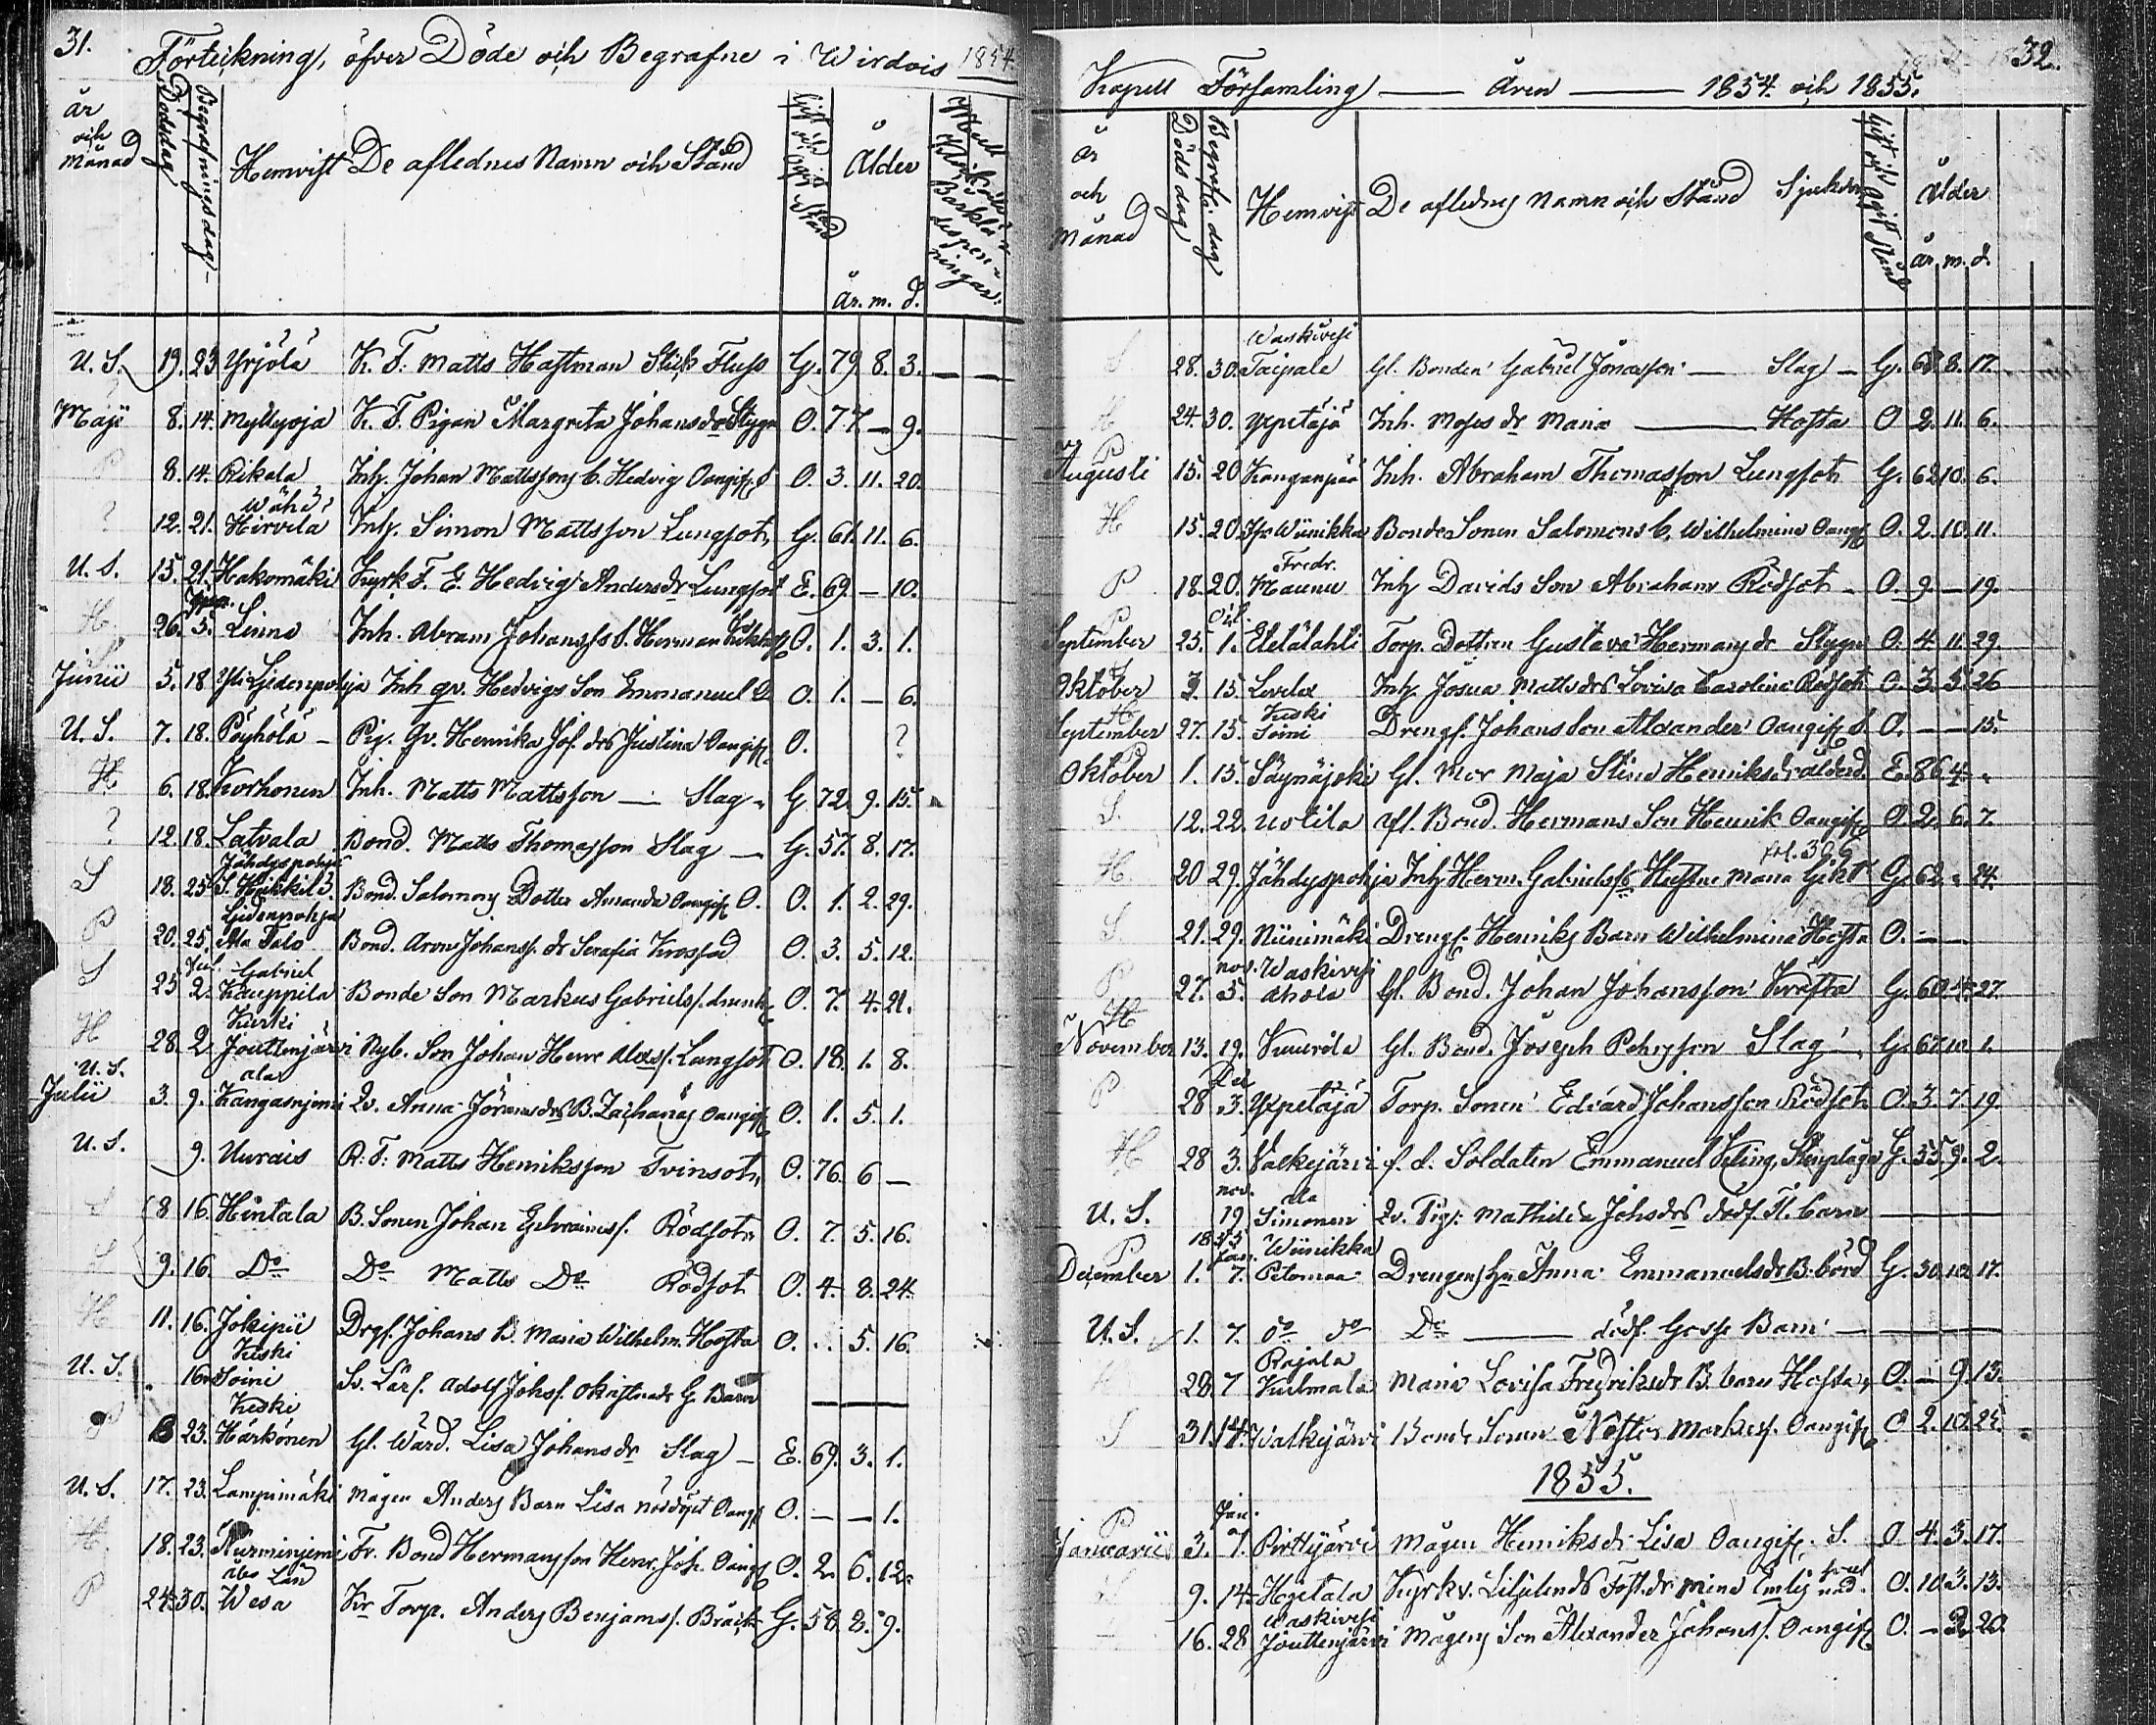 31.
Förteckning, öfver Döde och Begrafne i Wirdois 1854.
år och Månad Dödsdag Begrafningsdag Hemvist De aflednes Namn och Stånd Gift och ogift Stånd Ålder
år. m. d.
U. S. 19. 23 Yrjölä K. F. Matts Hastman Stick Fluss G. 79. 8. 3. — —
Maji 8. 14. Myllyoja K. F. Pigan Margreta Johansdr Stygn O. 77 — 9.
P 8. 14. Rikala Inh. Johan Mattssons b. Hedvig Oangif. S O. 3. 11. 20.
Wähä
? 12. 21. Hirvela Inh. Simon Mattsson Lungsot, G. 61. 11. 6.
U. S. 15. 21. Hakomäki Kyrk F. E. Hedvig Andersdr Lungsot E. 69. — 10.
H 26. 5. Linna Inh. Abram Johanss S. Herman O. 1. 3. 1.
Junii 5. 18 Yli Lidenpohja Inh qv. Hedvigs Son Emmanuel O. 1. — 6.
U. S. 7. 18. Pöyhölä — Pig. Qv. Henrika Jos. drs Justina Oangif O. ?
H 6. 18. Korhonen Inh. Matts Mattsson — Slag G. 72. 9. 15.
? 12. 18. Latvala Bond. Matts Thomasson Slag — G. 57. 8. 17.
Jähdyspohja
S 18. 25 S. Heikkilä Bond. Salomons Dotter Amanda Oangif O. O. 1. 2. 29.
Lidenpohja
P 20. 25. Ala Talo Bond. Aron Johanss. dr Serafia O. 3. 5. 12.
Jul. Gabriel
S 25 2. Kauppila Bonde Son Markus Gabriels. drunk O. 7. 4. 21.
Kurki
H 28. 2 Jouttenjärvi Nyb. Son Johan Henr Alexs. Lungsot O. 18. 1. 8.
U. S. ala
Julii 3. 9. Kangasnjemi Qv. Anna Jöransdrs B. Zachanäs Oangif O. 1. 5. 1.
U. S. 9. Uurais R. F. Matts Henriksson Tvinsot, O. 76. 6 —
S 8 16. Hintala B. Sonen Johan Ephraimss. Rödsot, O. 7. 5. 16.
S 9. 16. Do Do Matts Do Rödsot O. 4. 8. 24.
H 11. 16. Jokipii Drgs. Johans B. Maria Wilhelm. Hosta O. . 5. 16.
Keski
U. S. 16 Soini Sv. Lärs. Adolf Johss. G. Barn — — —
Keski
P 13 23. Härkönen Gl. Wärd. Lisa Johansdr Slag — E. 69. 3. 1.
U. S. 17. 23. Lampimäki Mågen Anders Barn Lisa nöddöpt Oang O. — — 1.
H 18. 23. Nurminjemi Fr. Bond Hermansson Henr. Joh. Oang O. 2. 6. 12.
Åbo Län
P 24. 30. Wesa Kr Torp. Anders Benjamss. Bråck G. 58. 2. 9.
32.
Kapell Församling — Åren — 1854. och 1855.
År och Månad Döds dag Begrafn. dag Hemvist De aflednes Namn och Stånd Sjukdom Gift och Ogift Stånd Ålder
år. m. d.
Waskivesi
S 28. 30. Taipale Gl. Bonden Gabriel Jonasson — Slag — G. 68. 8. 17.
H 24. 30. Yxpetäjä Inh. Moses dr Maria — Hosta O 2. 11. 6.
P
Augusti 15. 20 Kanganpää Inh. Abraham Thomasson Lungsot G. 62 10. 6.
H 15. 20. Wiinikka Bonde Sonen Salomons b. Wilhelmina Oang O. 2. 10. 11.
Fredr.
P 18. 20. Maunu Inh Davids Son Abraham Rödsot — O. 9. — 19.
P
September 25. 1. Etelälahti Torp. Dottren Gustava Hermans dr Stygn O. 4. 11. 29.
S
Oktober 3. 15. Levelax Inh Josua Matts drs Lovisa Carolina Rödsot O. 3. 5. 26
H Keski
September 27. 15. Soini Drengs. Johans Son Alexander Oangif S. O. — — 15.
P
Oktober 1. 15. Säynäjoki Gl. Mor Maja Stina Henriksdr ålderd. E. 86. 4.
S. 12. 22. Uotila Afl. Bond. Hermans Son Henrik Oangif O. 2. 6. 7.
H 20 29. Jähdyspohja Inh Herm. Gabrielss Hustru Maria Gikt G. 62. 24.
S. 21. 29. Niinimäki Drengs. Henriks Barn Wilhelmina Hosta O. — —
nov. Waskivesi
P 27. 5. Ahola Gl. Bond. Johan Johansson Kräfta G. 60. 4. 27.
H
November 13. 19. Kuurila Gl. Bond. Joseph Pehrsson Slag — G. 67. 10. 1.
De
P 28 3. Yxpetäjä Torp. Sonen Edvard Johansson Rödsot O. 3. 7. 19.
H 28 3. Valkejärvi f. d. Soldaten Emmanuel Stenplåga G. 55. 9. 2.
nov. ala
U. S. 19 Simonen Qv. Pigs. Mathilda Johsdrs dödf. Fl. barn —
1855
P Jan. Wiinikka
December 1. 7. Petomaa Drengens Hu Anna Emmanuelsdr B. börd G. 30. 10. 17.
U. S. 1. 7. do do Do — dödf. Gosse Barn —
Rajala
H 28. 7 Kulmala Maria Lovisa Fredriksdr B. barn Hosta, O. — 9. 13.
S 31. 14. Walkejärvi Bonde Sonen Nestor Markess. Oangif O 2. 10. 25.
1855.
P Jan.
Januarii 3. 7. Pirttijärvi Mågen Henriks dr Lisa Oangif. S. O. 4. 3. 17.
9. 14. Hoitala Kyrkv. Liljelunds Fost. dr Mina O. 10. 3. 13.
Waskivesi
16. 28. Jouttenjärvi Mågens Son Alexander Johanss. Oangif O. — 3. 20.